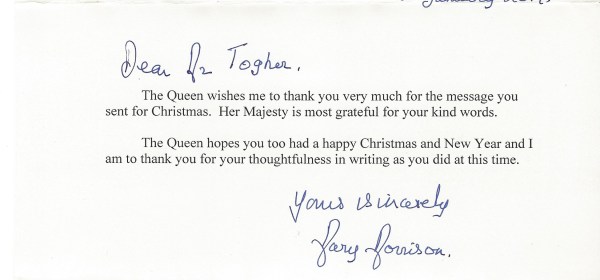 Dear Mr Togher.
The Queen wishes me to thank you very much for the message you
sent for Christmas. Her Majesty is most grateful for your kind words.
The Queen hopes you too had a happy Christmas and New Year and I
am to thank you for your thoughtfulness in writing as you did at this time.
Yours sincerely
Mary Morrison.